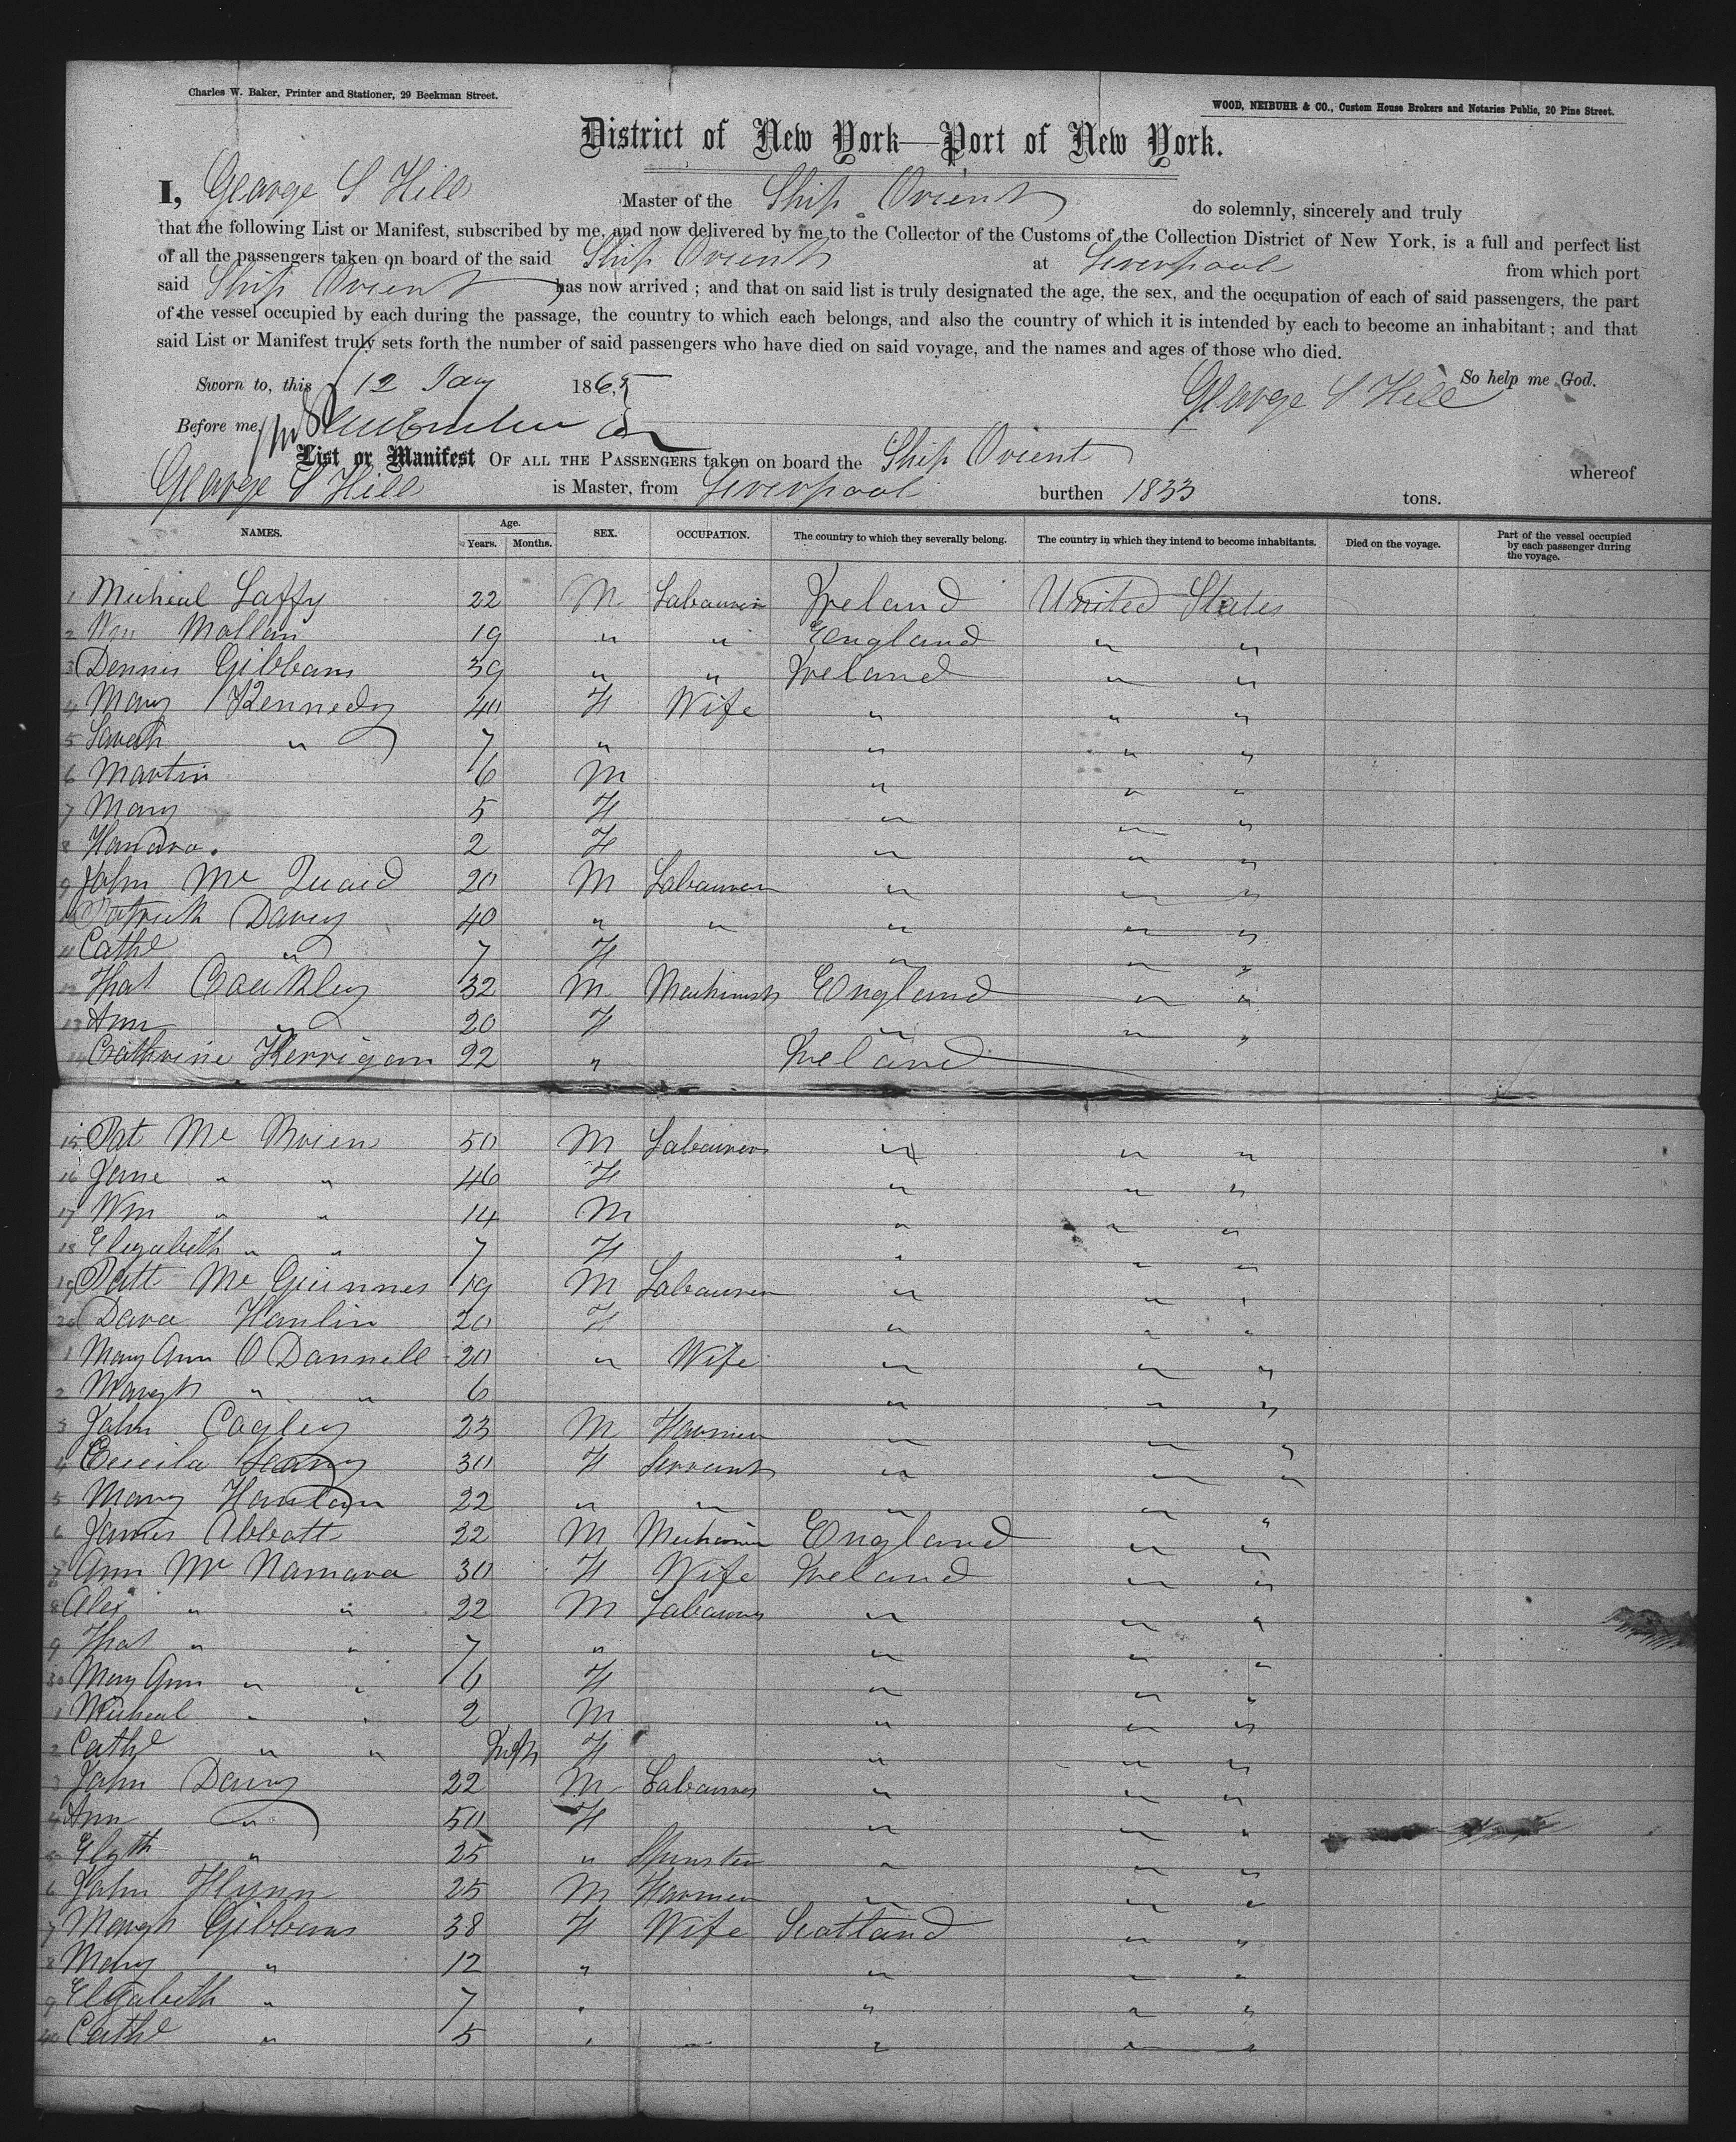 Charles W. Baker, Printer and Stationer, 29 Beekman Street.
WOOD, NEIBUHR & CO., Custom House Brokers and Notaries Public, 20 Pine Street.
District of New York—Port of New York.
I, George S Hill Master of the Ship Orient do solemnly, sincerely and truly
that the following List or Manifest, subscribed by me, and now delivered by me to the Collector of the Customs of the Collection District of New York, is a full and perfect list
of all the passengers taken on board of the said Ship Orient at Liverpool from which port
said Ship Orient has now arrived; and that on said list is truly designated the age, the sex, and the occupation of each of said passengers, the part
of the vessel occupied by each during the passage, the country to which each belongs, and also the country of which it is intended by each to become an inhabitant; and that
said List or Manifest truly sets forth the number of said passengers who have died on said voyage, and the names and ages of those who died.
So help me God.
Sworn to, this 12 Jany 1865 George S Hill
Before me
List or Manifest OF ALL THE PASSENGERS taken on board the Ship Orient whereof
George S Hill is Master, from Liverpool burthen 1833 tons.
NAMES. Age. Years. Months. SEX. OCCUPATION. The country to which they severally belong. The country in which they intend to become inhabitants. Died on the voyage. Part of the vessel occupied by each passenger during the voyage.
1 Micheal Laffy 22 M Labourer Ireland United States
2 Wm Mollan 19 " " England " "
3 Dennis Gibbons 39 " " Ireland " "
4 Mary Kennedy 40 F Wife " " "
5 Sarah " 7 " " " "
6 Martin 6 M " " "
7 Mary 5 F " " "
8 Hanara. 2 F " " "
9 John Mc Quaid 20 M Labourer " " "
10 Patrick Davey 40 " " " " "
11 Cathe " 7 F " " "
12 Thos 32 M Machinist England " "
13 Ann " 20 F " " "
14 Cathrine Kerrigan 22 " Ireland
15 Pat Mc Brien 50 M Labourer " " "
16 Jane " " 46 F " " "
17 Wm " " 14 M " " "
18 Elizabeth " " 7 F " " "
19 Patt Mc Guinnes 19 M Labourer " " "
20 Dara Hanlin 20 F " " "
1 Mary Ann O Dannell 20 " Wife " " "
2 Margt " " 6 " " "
3 John Cagley 23 M Farmer " " "
4 Cecila 30 F Servant " " "
5 Mary Hanlan 22 " " " " "
6 James Abbott 22 M England " "
7 Ann Mc Namara 30 F Wife Ireland " "
8 Alex " " 22 M Labourer " " "
9 Thos " " 7 " " " "
30 Mary Ann " " 6 F " " "
1 Micheal " " 2 M " " "
2 Cathe " " Inft F " " "
3 John Davey 22 M Labourer " " "
4 Ann " 50 F " " "
5 Elzth " 25 " Spinster " " "
6 John Flynn 25 M Farmer " " "
7 Margt Gibbons 38 F Wife Scotland " "
8 Mary " 12 " " " "
9 Elizabeth " 7 " " " "
40 Cathe " 5 " " " "